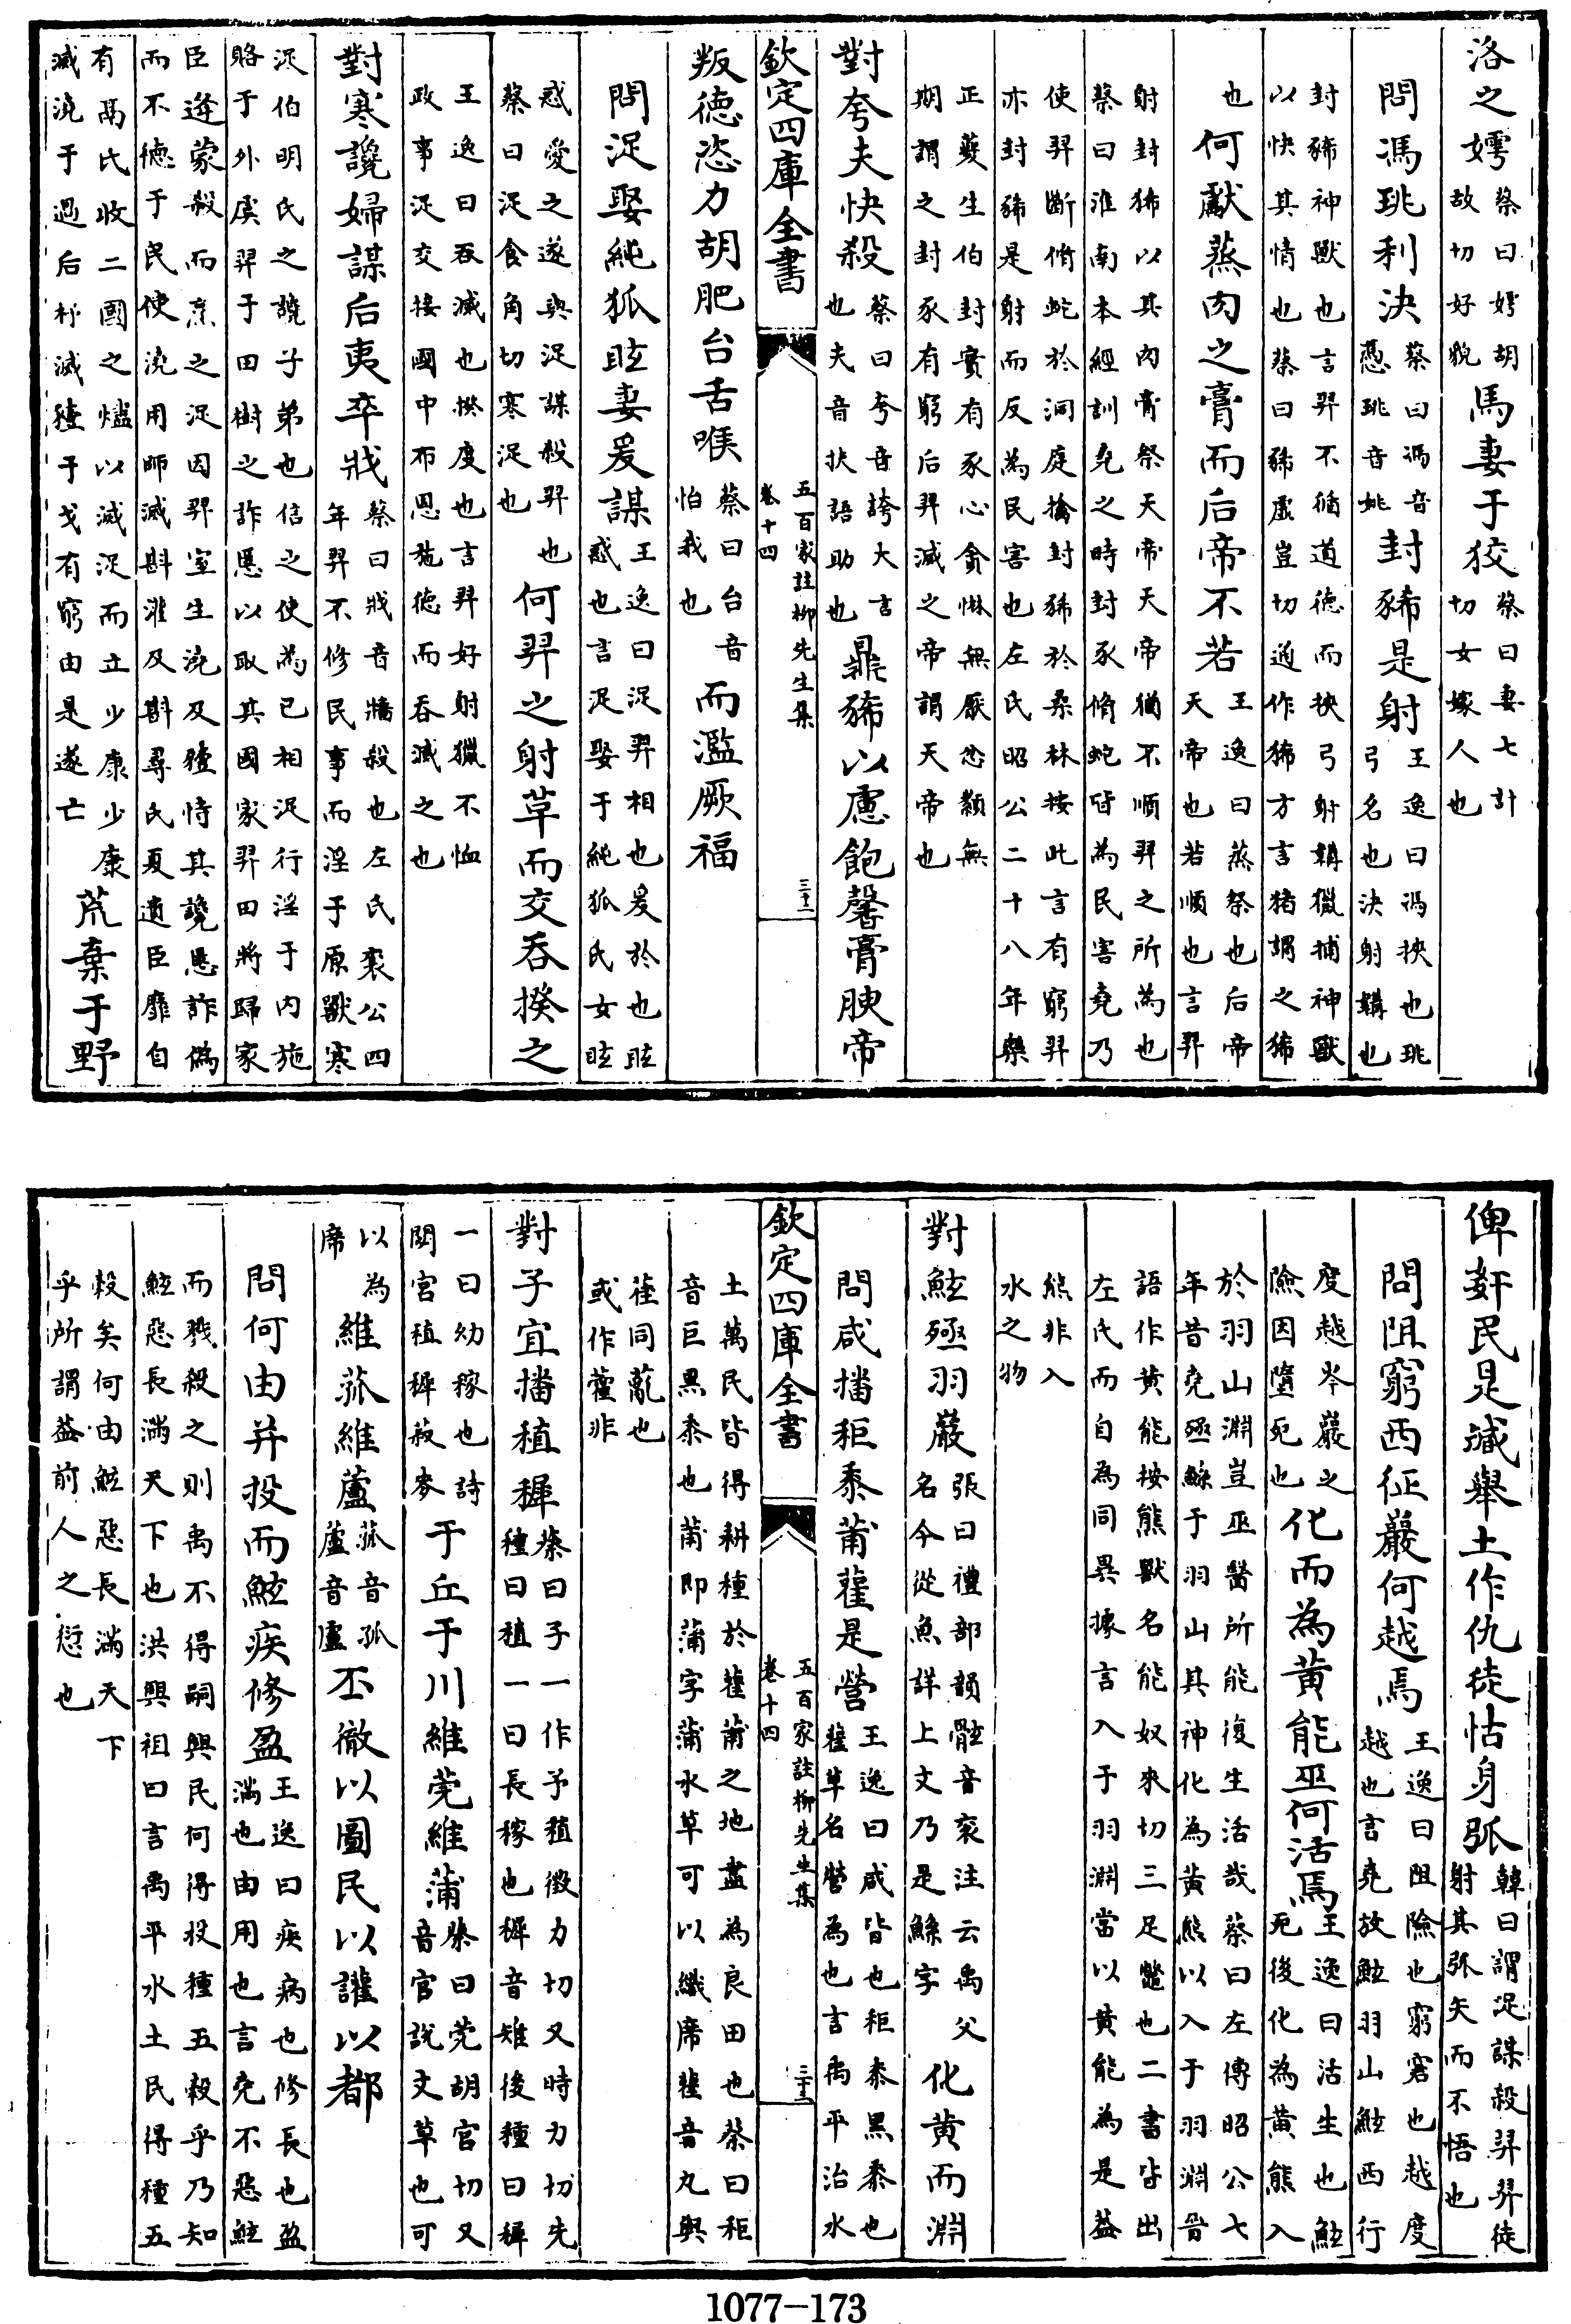 洛之嫮蔡曰嫮胡故切好貌焉妻于狡蔡曰妻七計切女嫁人也
問馮珧利決蔡曰馮音憑珧音姚封豨是射王逸曰馮挾也珧弓名也決射韝也
封豨神獸也言羿不循道德而挾弓射韝獵捕神獸以快其情也蔡曰豨虛豈切通作狶方言豬謂之狶
也何獻蒸肉之膏而后帝不若王逸曰蒸祭也后帝天帝也若順也言羿
射封豨以其肉膏祭天帝天帝猶不順羿之所為也蔡曰淮南本經訓堯之時封豕脩蛇皆為民害堯乃
使羿斷脩蛇於洞庭擒封豨於桑林按此言有窮羿亦封豨是射而反為民害也左氏昭公二十八年樂
正夔生伯封實有豕心貪惏無厭忿纇無期謂之封豕有窮后羿滅之帝謂天帝也
對夸夫快殺蔡曰夸音誇大言也夫音扶語助也鼎豨以慮飽馨膏腴帝
欽定四庫全書 五百家註柳先生集 卷十四 三十二
叛德恣力胡肥台舌喉蔡曰台音怡我也而濫厥福
問浞娶純狐眩妻爰謀王逸曰浞羿相也爰於也眩惑也言浞娶于純狐氏女眩
惑愛之遂與浞謀殺羿也蔡曰浞食角切寒浞也何羿之射革而交吞揆之
王逸曰吞滅也揆度也言羿好射獵不恤政事浞交接國中布恩施德而吞滅之也
對寒讒婦謀后夷卒戕蔡曰戕音牆殺也左氏襄公四年羿不修民事而淫于原獸寒
浞伯明氏之讒子弟也信之使為己相浞行淫于內施賂于外虞羿于田樹之詐慝以取其國家羿田將歸家
臣逄蒙殺而烹之浞因羿室生澆及豷恃其讒慝詐偽而不德于民使澆用師滅斟灌及斟尋氏夏遺臣靡自
有鬲氏收二國之燼以滅浞而立少康少康滅澆于過后杼滅豷于戈有窮由是遂亡荒棄于野
俾奸民是滅舉土作仇徒怙身弧韓曰謂浞謀殺羿羿徒射其弧矢而不悟也
問阻窮西征巖何越焉王逸曰阻險也窮窘也越度越也言堯放鮌羽山鮌西行
度越岑巖之險因墮死也化而為黃能巫何活焉王逸曰活生也鮌死後化為黃熊入
於羽山淵豈巫醫所能復生活哉蔡曰左傳昭公七年昔堯殛鯀于羽山其神化為黃熊以入于羽淵晉
語作黃能按熊獸名能奴來切三足鼈也二書皆出左氏而自為同異據言入于羽淵當以黃能為是蓋
熊非入水之物
對鮌殛羽巖張曰禮部韻骸音衮注云禹父名今從魚詳上文乃是鯀字化黃而淵
問咸播秬黍莆雚是營王逸曰咸皆也秬黍黑黍也雚草名營為也言禹平治水
欽定四庫全書 五百家註柳先生集 卷十四 三十三
土萬民皆得耕種於雚莆之地盡為良田也蔡曰秬音巨黑黍也莆即蒲字蒲水草可以織席雚音丸與
萑同薍也或作藋非
對子宜播稙穉蔡曰子一作予稙徵力切又時力切先種曰稙一曰長稼也穉音雉後種曰穉
一曰幼稼也詩閟宮稙穉菽麥于丘于川維莞維蒲蔡曰莞胡官切又音官說文草也可
以為席維菰維蘆菰音孤蘆音盧丕徹以圖民以讙以都
問何由并投而鮌疾修盈王逸曰疾病也修長也盈滿也由用也言堯不惡鮌
而戮殺之則禹不得嗣興民何得投種五穀乎乃知鮌惡長滿天下也洪興祖曰言禹平水土民得種五
穀矣何由鮌惡長滿天下乎所謂蓋前人之愆也
1077-173